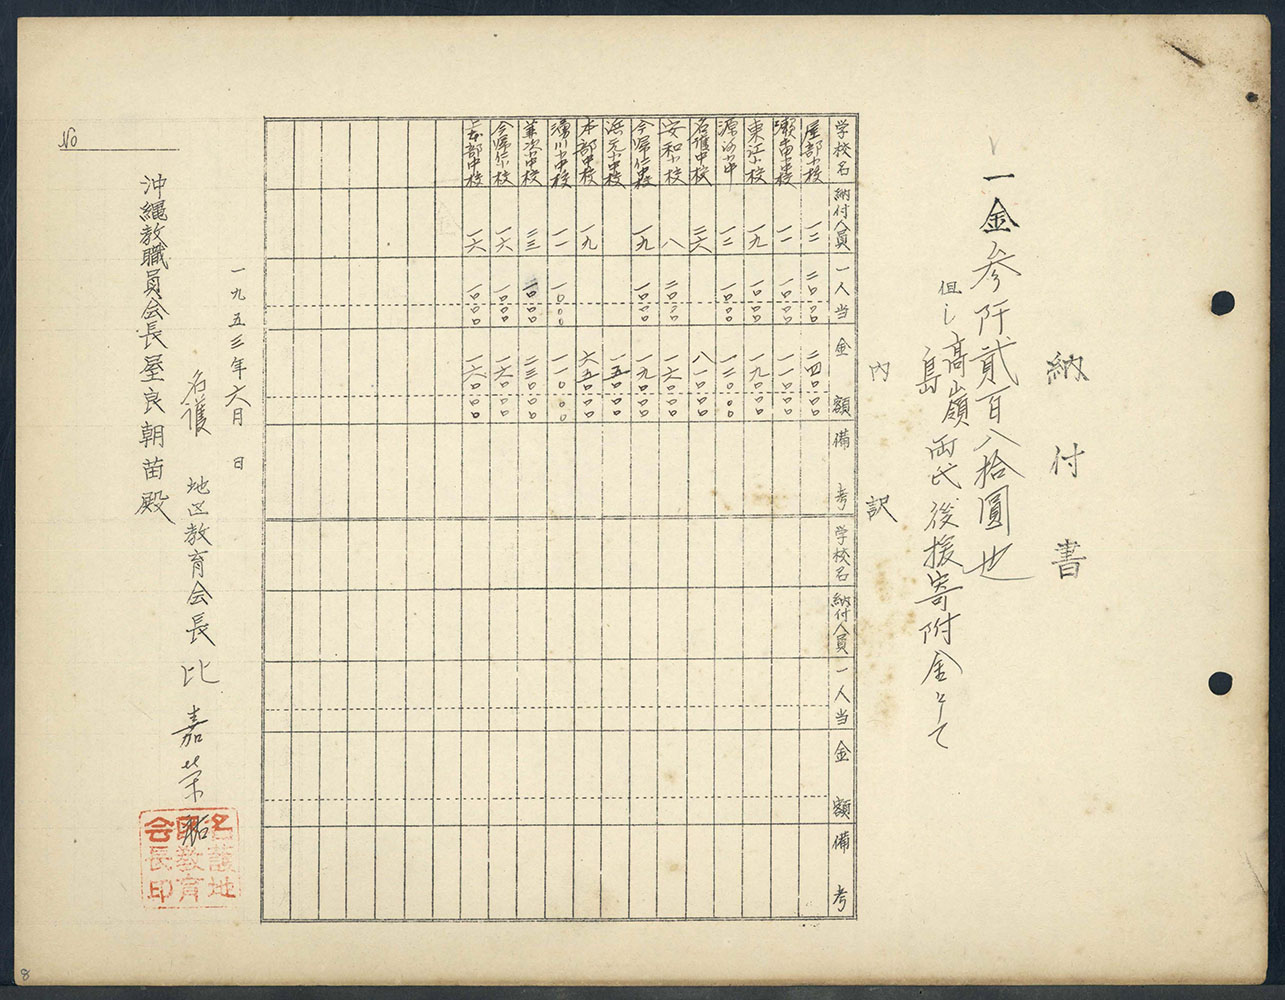 納付書
一金参阡貳百八拾圓也
但し高嶺
島 両氏後援寄附金として
内訳
学校名 納付人員 一人当 金額 備考 学校名 納付人員 一人当 金額 備考
屋部小校 一二 二〇〇〇 二四〇〇〇
瀬喜田中校 一一 一〇〇〇 一一〇〇〇
東江小校 一九 一〇〇〇 一九〇〇〇
源河小中 一二 一〇〇〇 一二〇〇〇
名護中校 二六 八一〇〇〇
安和小校 八 二〇〇〇 一六〇〇〇
今帰仁中校 一九 一〇〇〇 一九〇〇〇
浜元小中校 一五〇〇〇
本部中校 一九 六五〇〇〇
湧川小中校 一一 一〇〇〇 一一〇〇〇
兼次小中校 二三 一〇〇〇 二三〇〇〇
今帰仁小校 一六 一〇〇〇 一六〇〇〇
上本部中校 一六 一〇〇〇 一六〇〇〇
一九五三年六月 日
名護 地区教育会長 比嘉栄祐
沖縄教職員会長屋良朝苗殿
No
名護地
区教育
会長印
8